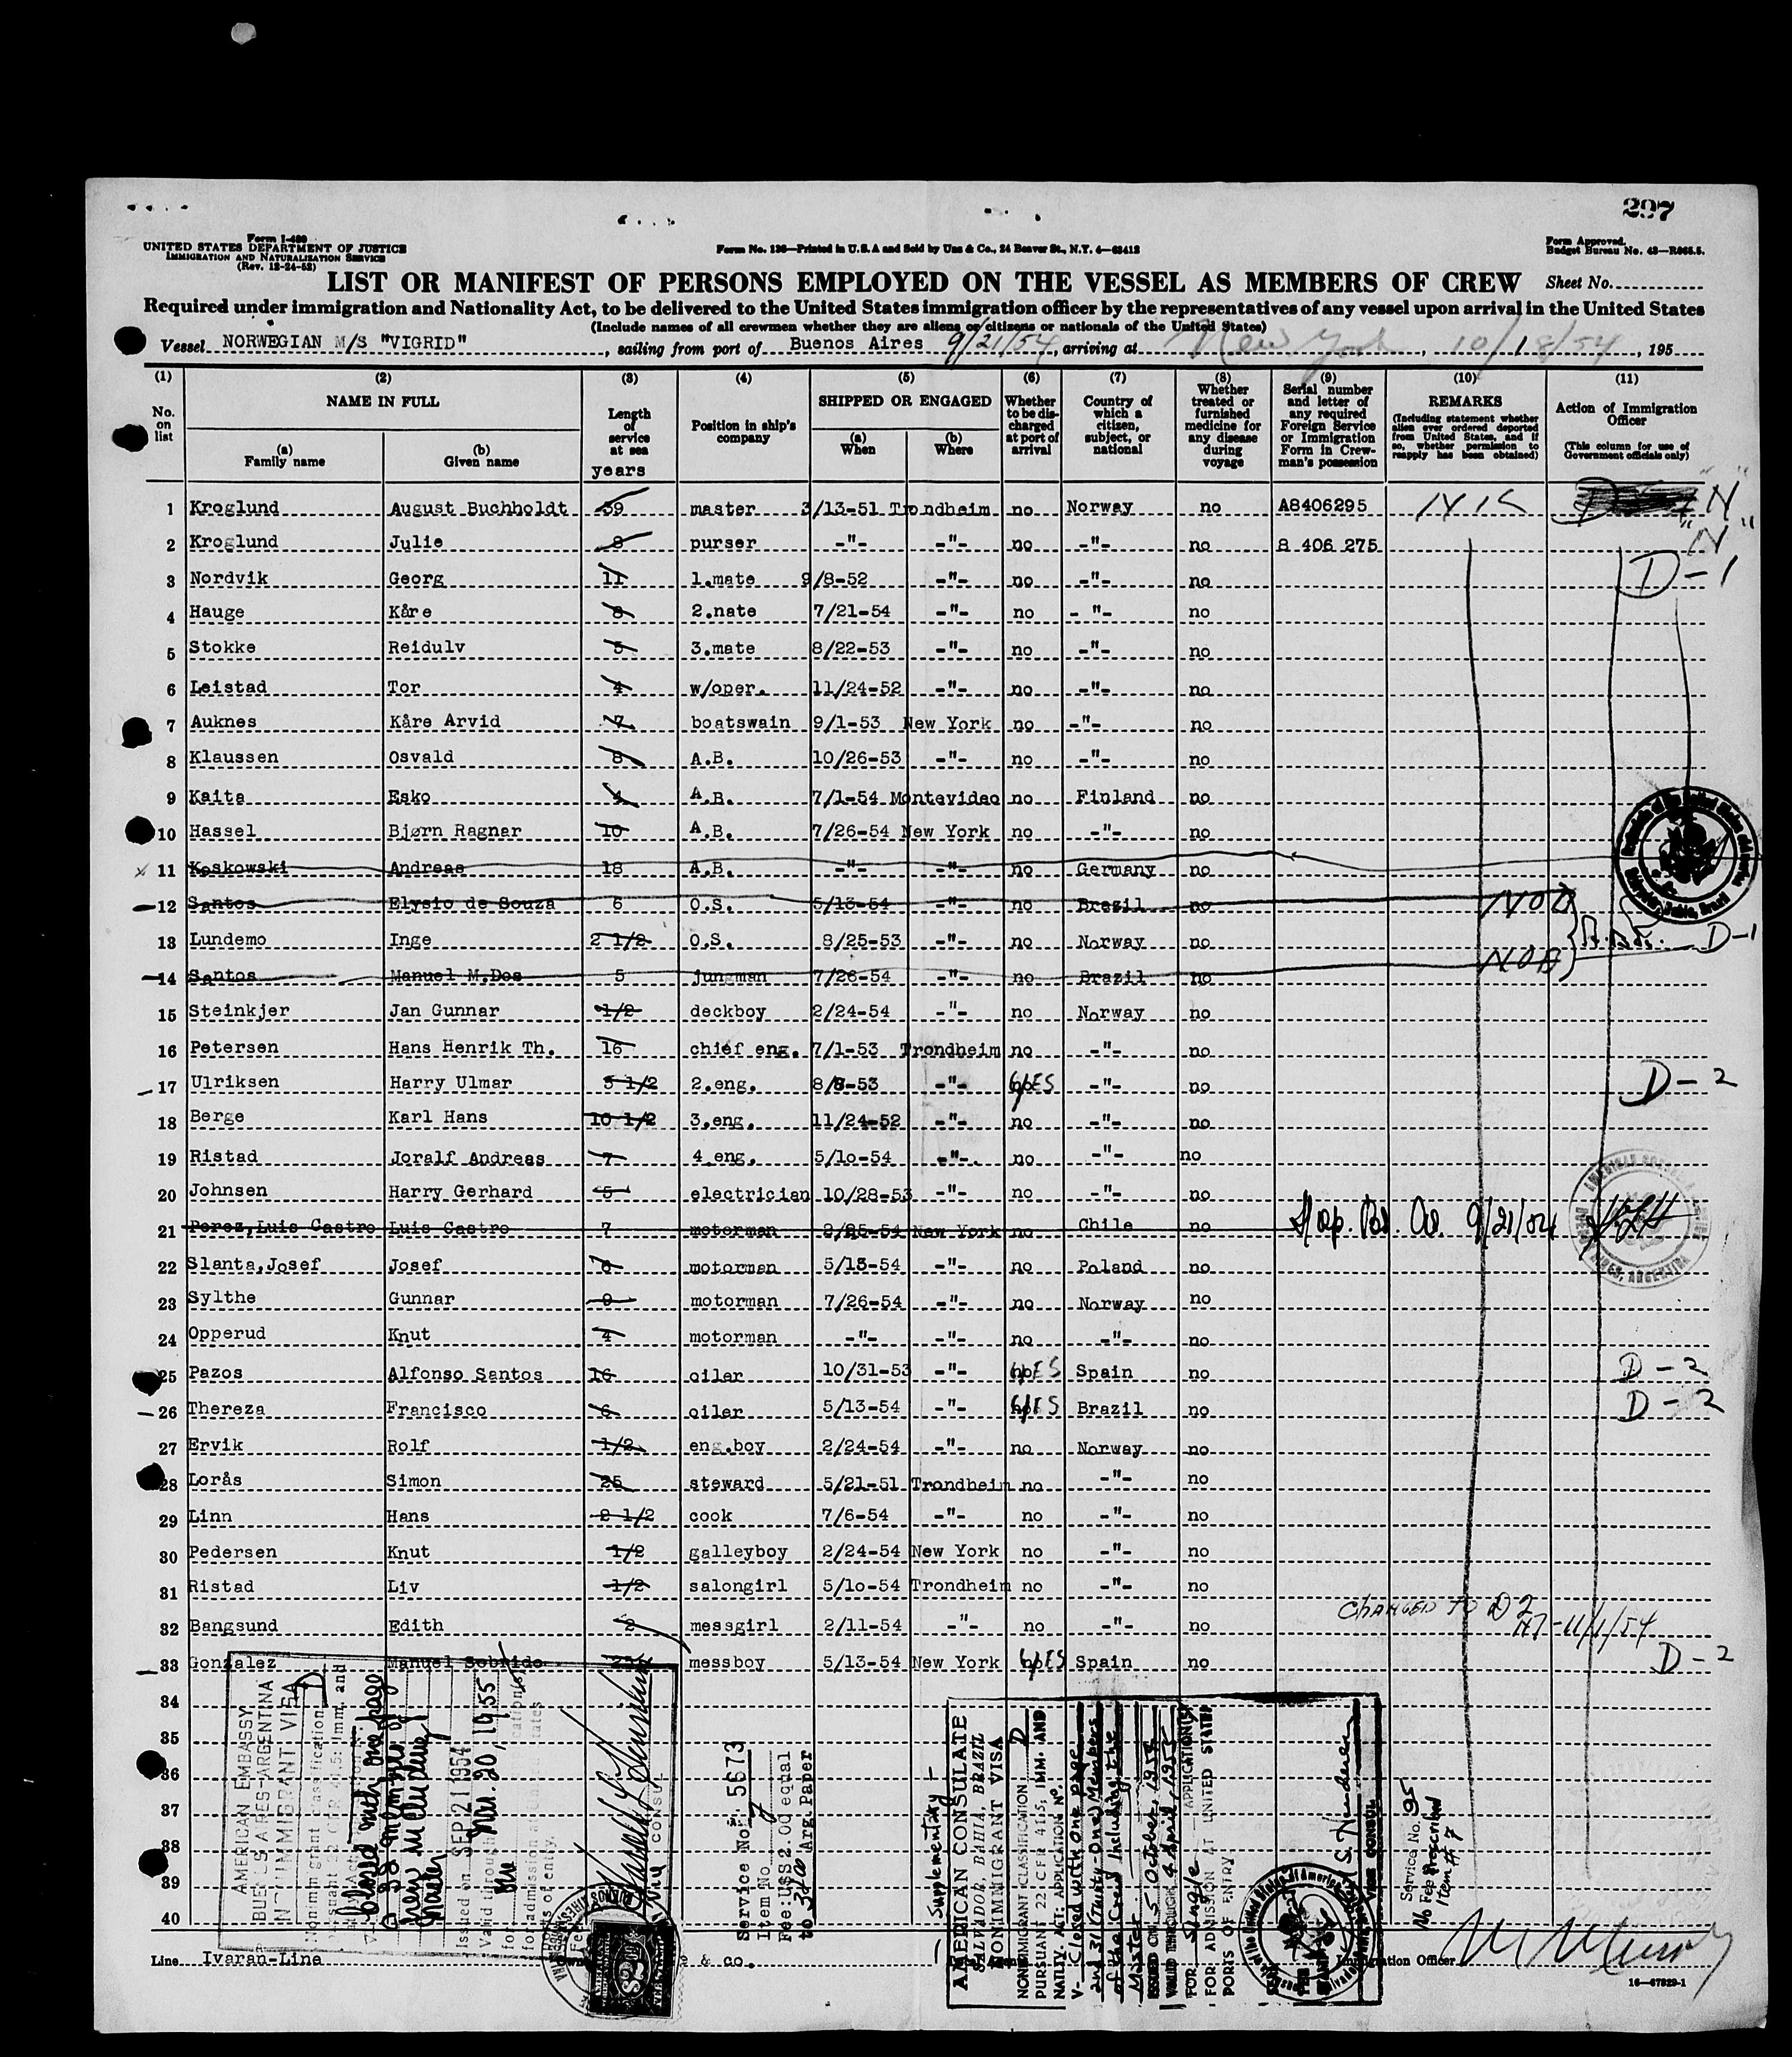 297
Form I-480
UNITED STATES DEPARTMENT OF JUSTICE
IMMIGRATION AND NATURALIZATION SERVICE
(Rev. 12-24-52)
Form No. 136—Printed in U.S.A and Sold by Unz & Co., 24 Beaver St., N.Y. 4—63412
Form Approved.
Budget Bureau No. 43—R065.5.
LIST OR MANIFEST OF PERSONS EMPLOYED ON THE VESSEL AS MEMBERS OF CREW Sheet No.
Required under immigration and Nationality Act, to be delivered to the United States immigration officer by the representatives of any vessel upon arrival in the United States
(Include names of all crewmen whether they are aliens or citizens or nationals of the United States)
Vessel NORWEGIAN M/S "VIGRID", sailing from port of Buenos Aires 9/21/54, arriving at New York, 10/18/54, 195
(1) (2) (3) (4) (5) (6) (7) (8) (9) (10) (11)
No. on list
NAME IN FULL
(a) Family name
(b) Given name
Length of service at sea
years
Position in ship's company
SHIPPED OR ENGAGED
(a) When
(b) Where
Whether to be discharged at port of arrival
Country of which a citizen, subject, or national
Whether treated or furnished medicine for any disease during voyage
Serial number and letter of any required Foreign Service or Immigration Form in Crewman's possession
REMARKS
(Including statement whether alien ever ordered deported from United States, and if so, whether permission to reapply has been obtained)
Action of Immigration Officer
(This column for use of Government officials only)
1 Kroglund August Buchholdt 39 master 3/13-51 Trondheim no Norway no A8406295 "N"
2 Kroglund Julie 8 purser -"- -"- no -"- no 8 406 275 "N"
3 Nordvik Georg 11 1.mate 9/8-52 -"- no -"- no D-1
4 Hauge Kåre 8 2.nate 7/21-54 -"- no -"- no
5 Stokke Reidulv 5 3.mate 8/22-53 -"- no -"- no
6 Leistad Tor 4 w/oper. 11/24-52 -"- no -"- no
7 Auknes Kåre Arvid 7 boatswain 9/1-53 New York no -"- no
8 Klaussen Osvald 8 A.B. 10/26-53 -"- no -"- no
9 Kaita Esko 4 A.B. 7/1-54 Montevideo no Finland no
10 Hassel Bjørn Ragnar 10 A.B. 7/26-54 New York no -"- no
11 Koskowski Andreas 18 A.B. -"- -"- no Germany no
12 Santos Elysio de Souza 6 O.S. 5/13-54 -"- no Brezil no NOB
13 Lundemo Inge 2 1/2 O.S. 8/25-53 -"- no Norway no D-1
14 Santos Manuel M.Dos 5 jungman 7/26-54 -"- no Brazil no NOB
15 Steinkjer Jan Gunnar 1/2 deckboy 2/24-54 -"- no Norway no
16 Petersen Hans Henrik Th. 16 chief eng. 7/1-53 Trondheim no -"- no
17 Ulriksen Harry Ulmar 5 1/2 2.eng. 8/8-53 -"- YES -"- no D-2
18 Berge Karl Hans 10 1/2 3.eng. 11/24-52 -"- no -"- no
19 Ristad Joralf Andreas 7 4.eng. 5/10-54 -"-. no -"- no
20 Johnsen Harry Gerhard 5 electrician 10/28-53 -"- no -"- no
21 Perez,Luis Castro Luis Castro 7 motorman 2/25-54 New York no Chile no 9/21/54
22 Slanta,Josef Josef 6 motorman 5/13-54 -"- no Poland no
23 Sylthe Gunnar 9 motorman 7/26-54 -"- no Norway no
24 Opperud Knut 4 motorman -"- -"- no -"- no
25 Pazos Alfonso Santos 16 oiler 10/31-53 -"- YES Spain no D-2
26 Thereza Francisco 6 oiler 5/13-54 -"- YES Brazil no D-2
27 Ervik Rolf 1/2 eng.boy 2/24-54 -"- no Norway no
28 Lorås Simon 25 steward 5/21-51 Trondheim no -"- no
29 Linn Hans 2 1/2 cook 7/6-54 -"- no -"- no
30 Pedersen Knut 1/2 galleyboy 2/24-54 New York no -"- no
31 Ristad Liv 1/2 salongirl 5/10-54 Trondheim no -"- no
CHANGED TO D2
32 Bangsund Edith 2 messgirl 2/11-54 -"- no -"- no 11/1/54
33 Gonzalez Manuel Sobrido messboy 5/13-54 New York YES Spain no D-2
34
35
36
37
38
39
40
AMERICAN EMBASSY
BUENOS AIRES-ARGENTINA
NONIMMIGRANT VISA
Nonimmigrant Classification D
Closed with one page
& 33 members of
crew including
Master
Issued on SEP 21 1954
Valid through Mar. 20, 1955
for One
for admission at
ports of entry.
Service No. 5673
Item No. 7
Fee: US$ 2.00 equal
to Arg. Paper
Supplementary
AMERICAN CONSULATE
SALVADOR, BAHIA, BRAZIL
NONIMMIGRANT VISA
NONIMMIGRANT CLASSIFICATION D
PURSUANT 22 CFR 41.5, IMM. AND
NATLY. ACT; APPLICATION No.
V- Closed with one page
and 31 (Thirty-one) Members
of the Crew including the
Master
ISSUED ON 5 October, 1954
VALID THROUGH 4 April, 1955
FOR Single APPLICATION(S)
FOR ADMISSION AT UNITED STATES
PORTS OF ENTRY
VICE CONSUL
Service No. 95
No Fee Prescribed
Item # 7
Line Ivaran-Line & co. Immigration Officer
16—67829-1